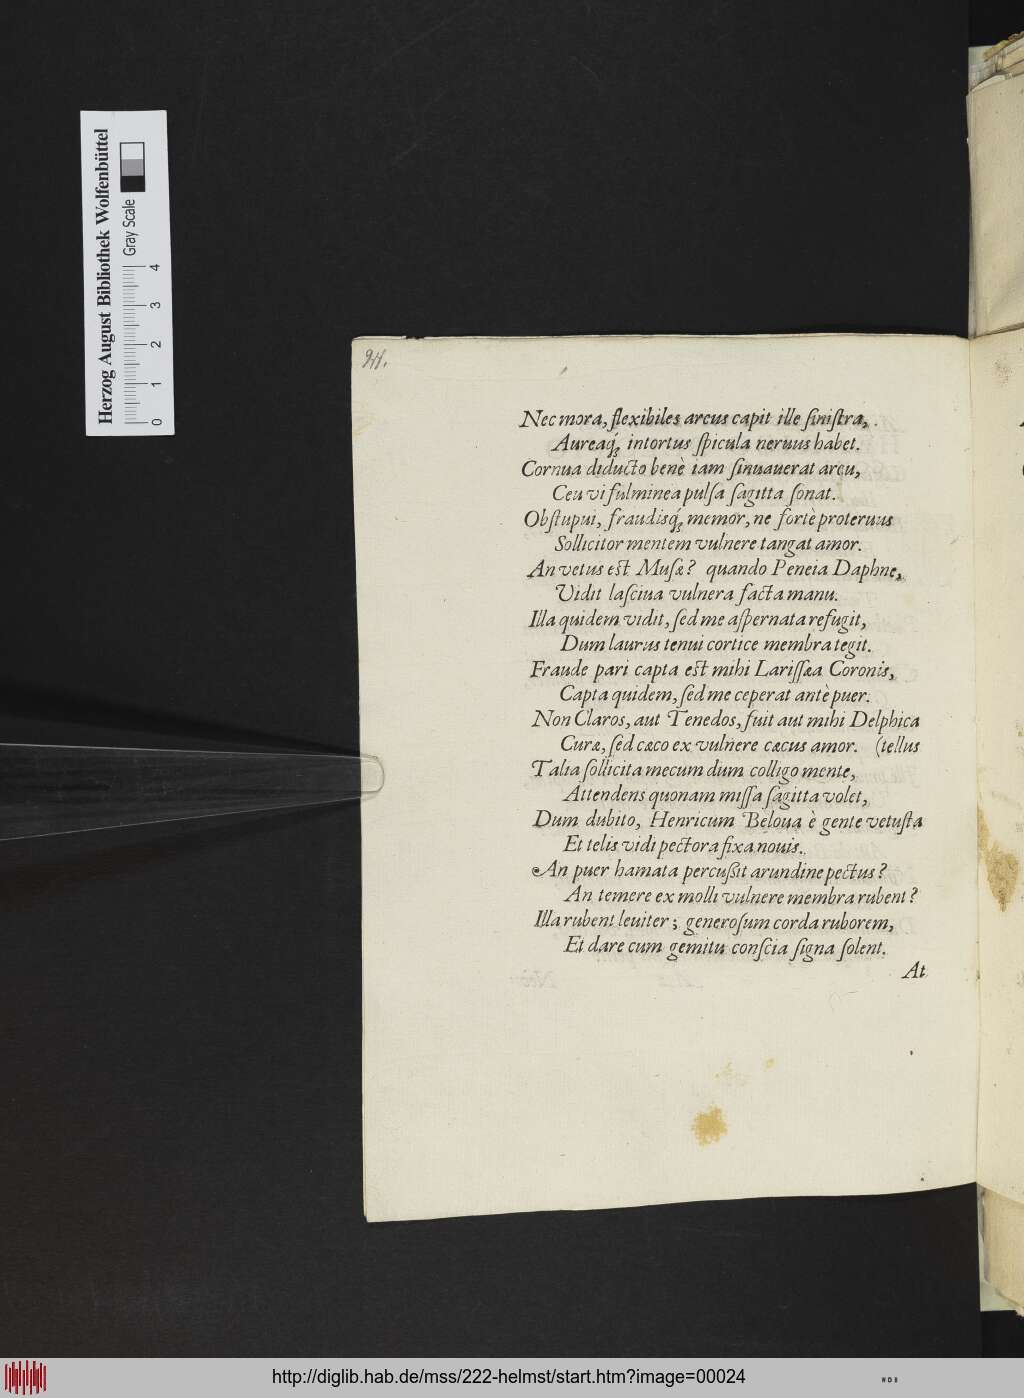 24.
Nec mora, flexibiles arcus capit ille siniſtra,
Aureaq́; intortus ſpicula neruus habet.
Cornua diducto benè iam ſinuauerat arcu,
Ceu vi fulminea pulſa ſagitta ſonat.
Obſtupui, fraudisq́; memor, ne fortè proteruus
Sollicitor mentem vulnere tangat amor.
An vetus est Muſæ? quando Peneia Daphne,
Vidit laſciua vulnera facta manu.
Illa quidem vidit, ſed me aſpernata refugit,
Dum laurus tenui cortice membra tegit.
Fraude pari capta est mihi Lariſſæa Coronis,
Capta quidem, ſed me ceperat antè puer.
Non Claros, aut Tenedos, fuit aut mihi Delphica
Curæ, ſed cæco ex vulnere cæcus amor. (tellus
Talia ſollicita mecum dum colligo mente,
Attendens quonam miſſa ſagitta volet,
Dum dubito, Henricum Beloua è gente vetuſta
Et telis vidi pectora fixa nouis.
An puer hamata percußit arundine pectus?
An temere ex molli vulnere membra rubent?
Illa rubent leuiter; generoſum corda ruborem,
Et dare cum gemitu conſcia ſigna ſolent.
At
Herzog August Bibliothek Wolfenbüttel
Gray Scale
0 1 2 3 4
http://diglib.hab.de/mss/222-helmst/start.htm?image=00024